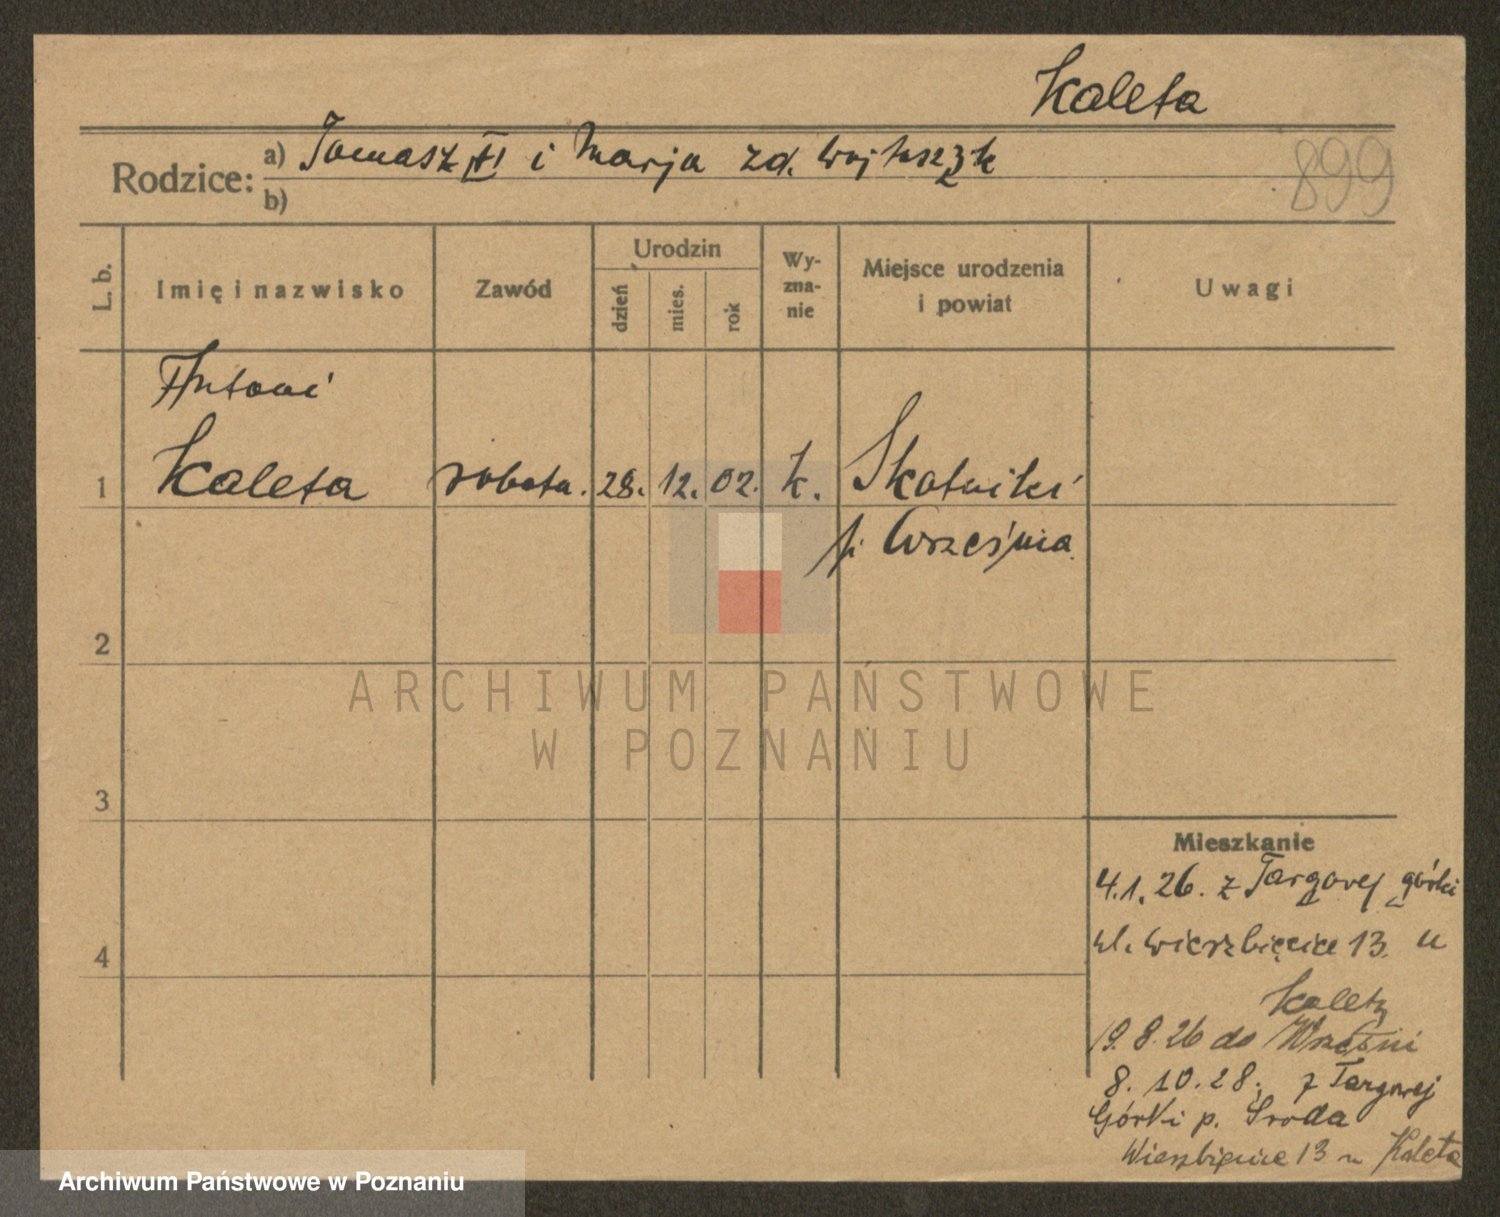 Kaleta
899
Rodzice: a) Tomasz i Marja zd. Wojtaszek
b)
L. b.
Imię i nazwisko
Zawód
Urodzin
dzień
mies.
rok
Wy-
zna-
nie
Miejsce urodzenia
i powiat
Uwagi
Antoni
1 Kaleta robotn. 28. 12. 02. k. Skotniki
p. Września
2
3
4
ARCHIWUM PAŃSTWOWE
W POZNANIU
Mieszkanie
4.1.26. z Targowej górki
ul. Wierzbięcice 13. u
Kalety
19.8.26 do Wrześni
8.10.28. z Targowej
Górki p. Środa
Wierzbięcice 13 u Kaleta
Archiwum Państwowe w Poznaniu